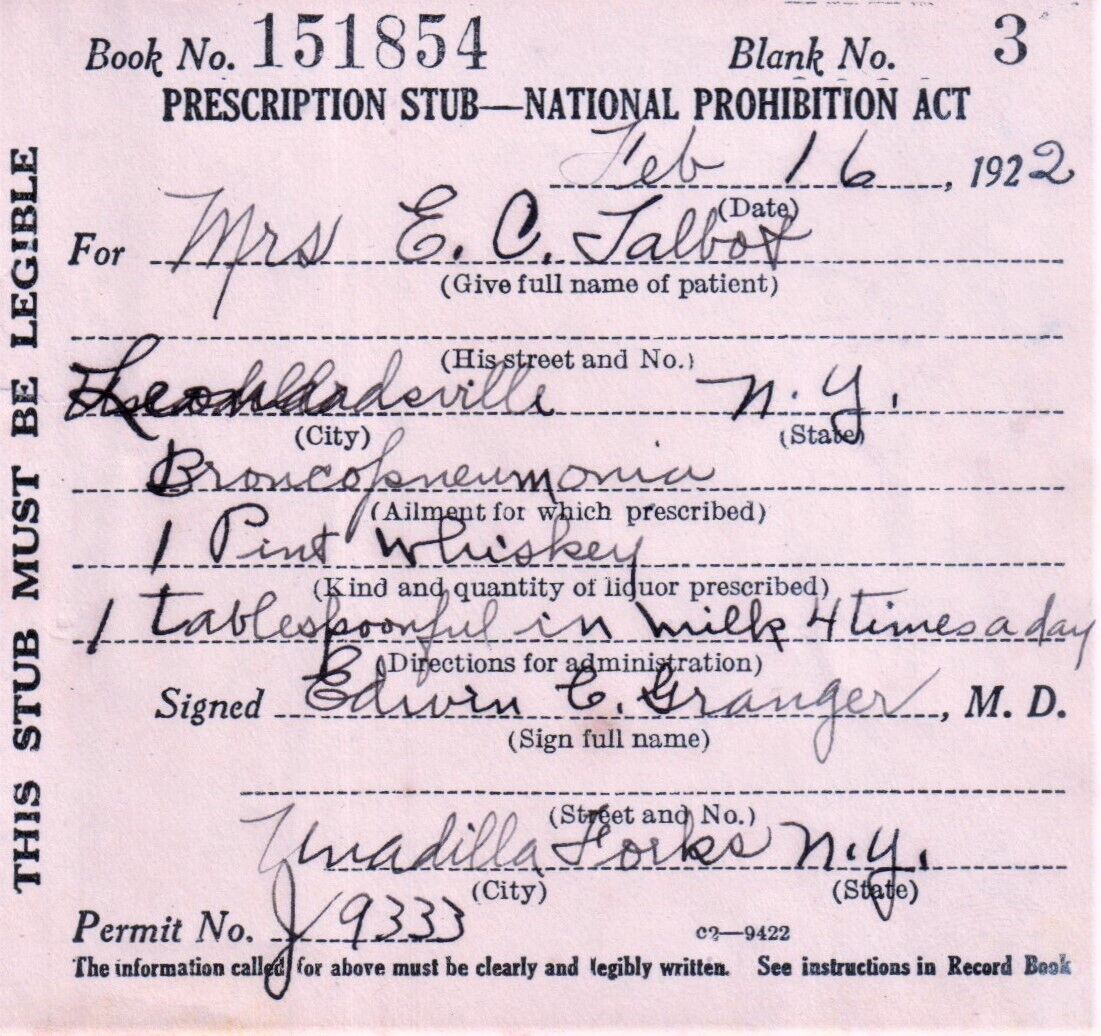 Book No. 151854 Blank No. 3
PRESCRIPTION STUB—NATIONAL PROHIBITION ACT
Feb 16, 1922
(Date)
For Mrs E. C. Talbot
(Give full name of patient)
(His street and No.)
Leonardsville N.Y.
(City) (State)
Broncopneumonia
(Ailment for which prescribed)
1 Pint Whiskey
(Kind and quantity of liquor prescribed)
1 tablespoonful in milk 4 times a day
(Directions for administration)
Signed Edwin C. Granger, M. D.
(Sign full name)
(Street and No.)
Unadilla Forks N.Y.
(City) (State)
Permit No. J 9333 C2—9422
The information called for above must be clearly and legibly written. See instructions in Record Book
THIS STUB MUST BE LEGIBLE